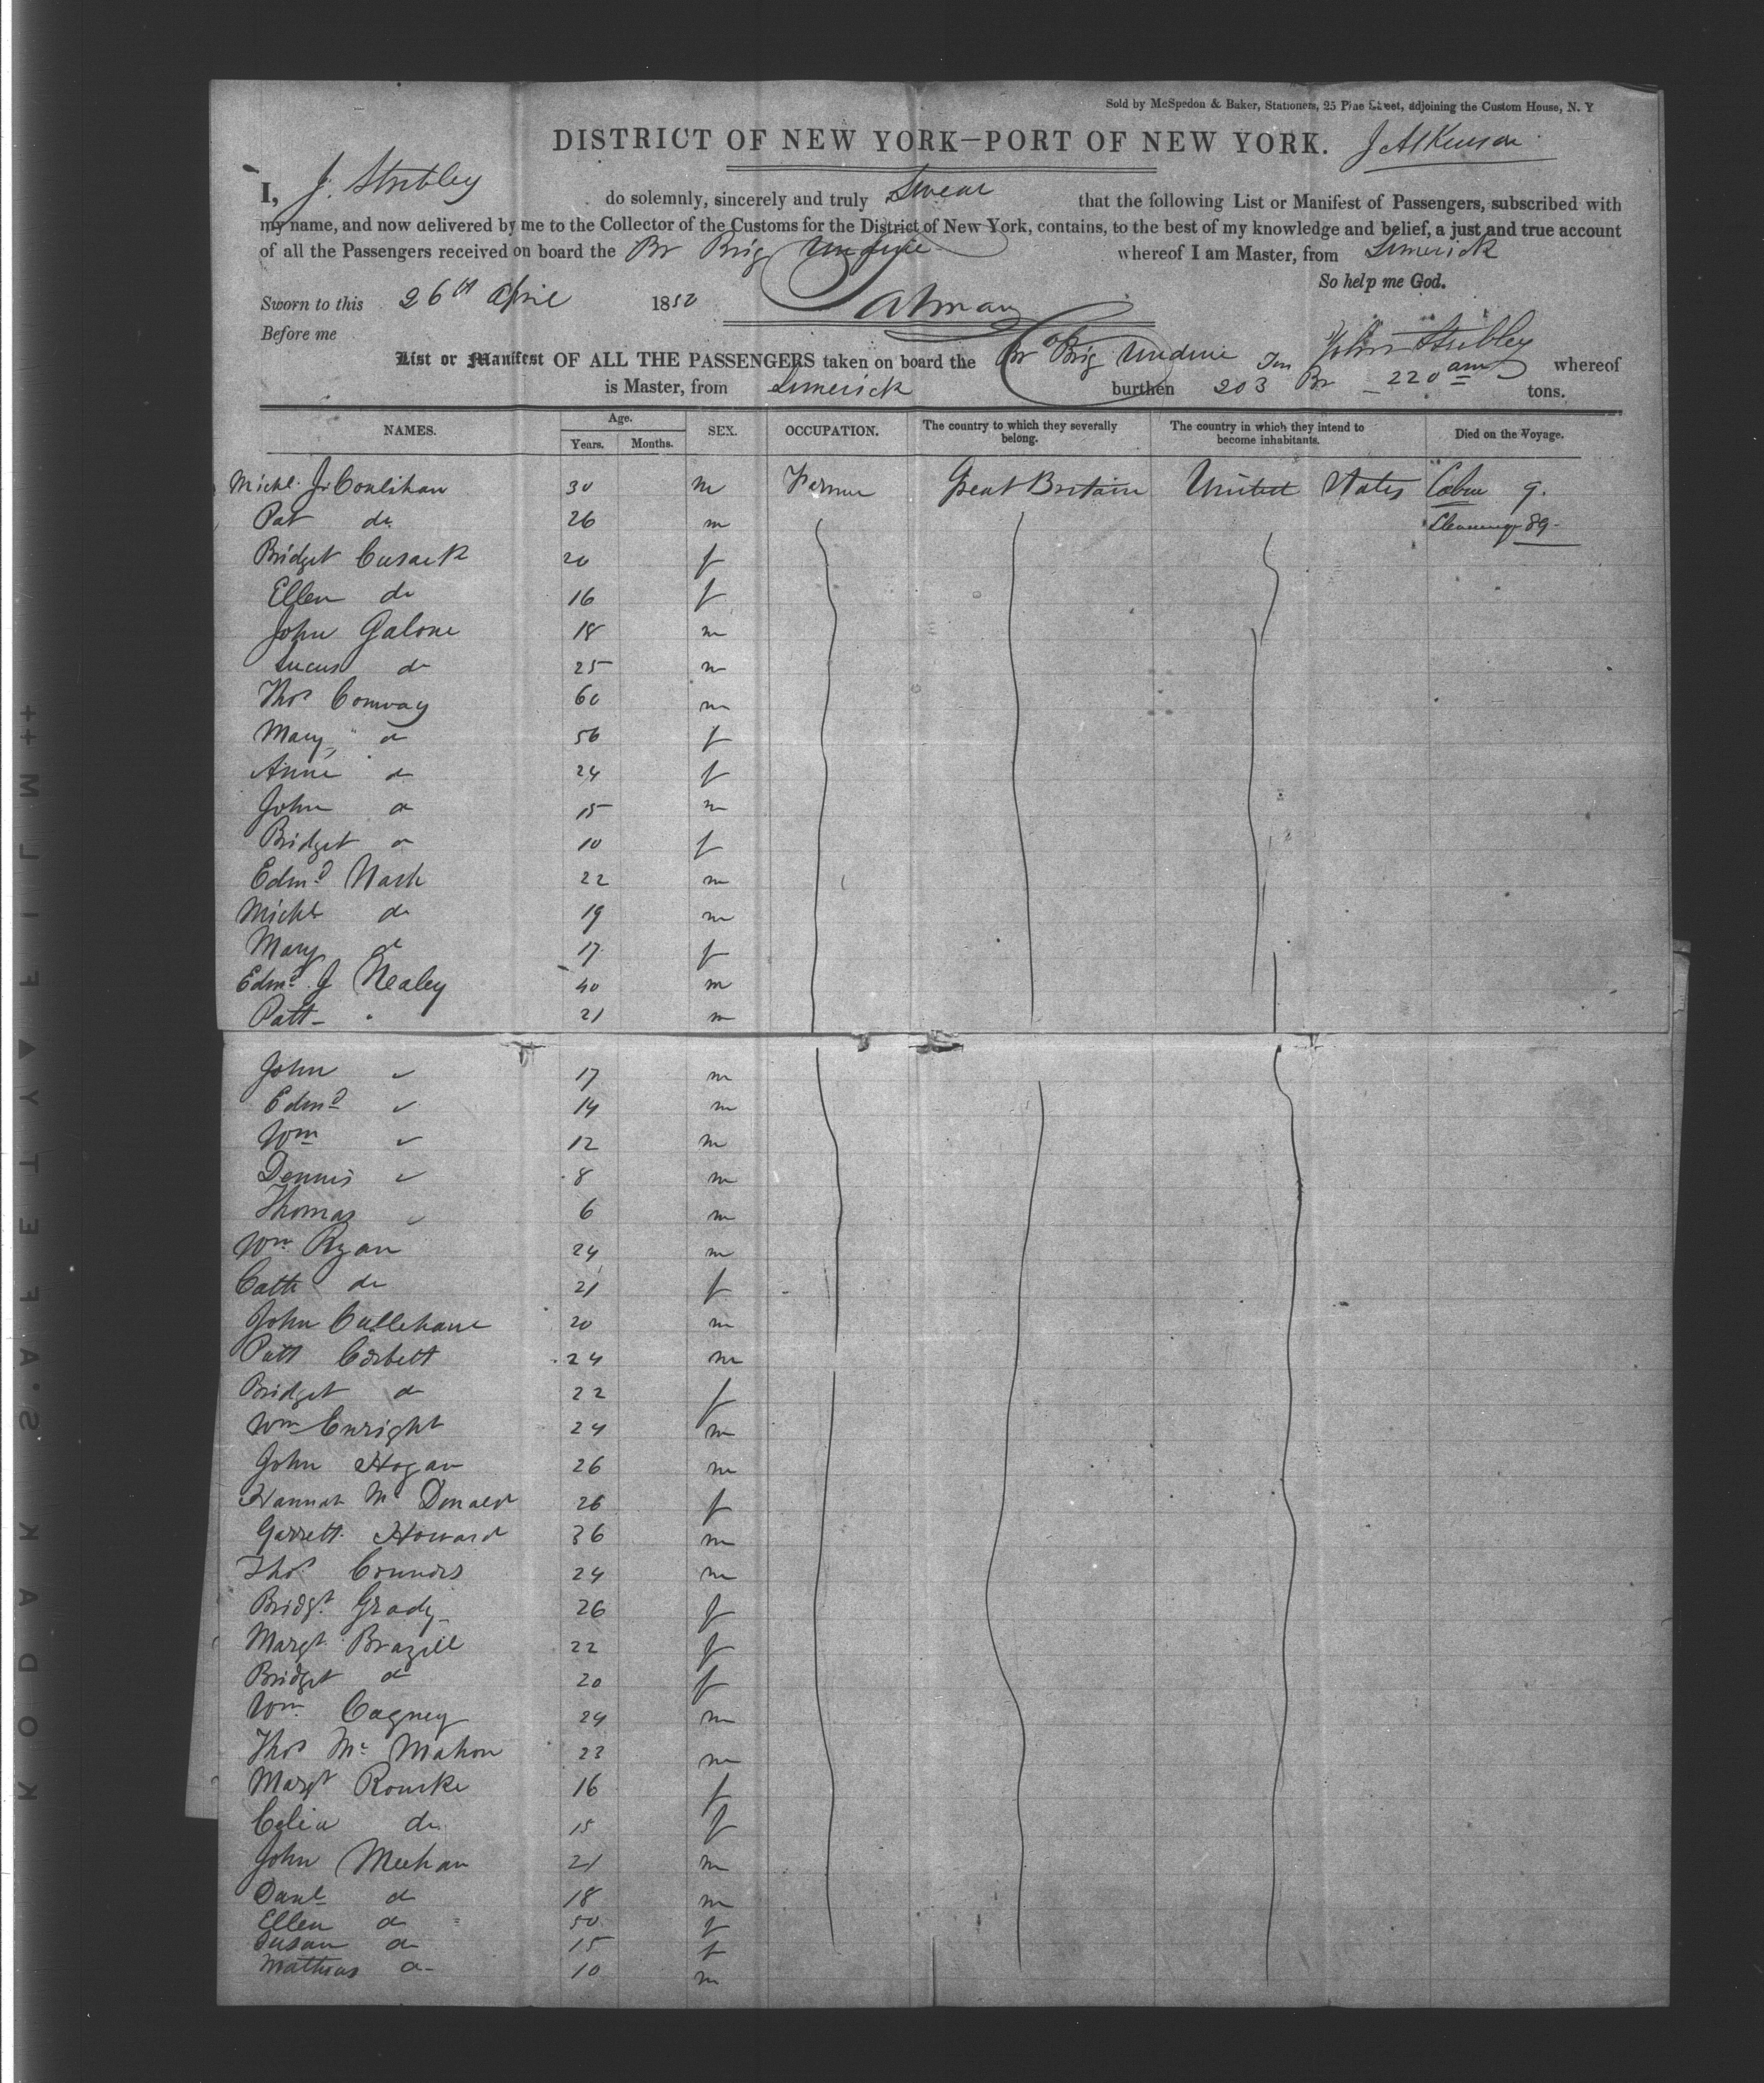 Sold by McSpedon & Baker, Stationers, 25 Pine Street, adjoining the Custom House, N. Y
DISTRICT OF NEW YORK—PORT OF NEW YORK.
I, J. Stribley do solemnly, sincerely and truly Swear that the following List or Manifest of Passengers, subscribed with
my name, and now delivered by me to the Collector of the Customs for the District of New York, contains, to the best of my knowledge and belief, a just and true account
of all the Passengers received on board the Br Brig Undine whereof I am Master, from Limerick
So help me God.
Sworn to this 26th April 1850
Before me
List or Manifest OF ALL THE PASSENGERS taken on board the Br Brig Undine John Stribley whereof
is Master, from Limerick burthen 203 Br 220 tons.
NAMES. Age. Years. Months. SEX. OCCUPATION. The country to which they severally belong. The country in which they intend to become inhabitants. Died on the Voyage.
Michl. J. Conlihan 30 m Farmer Great Britain United States Cabin 9.
Pat do 26 m 89
Bridget Cusack 20 f
Ellen do 16 f
John Galone 18 m
Lucus do 25 m
Thos Conway 60 m
Mary do 56 f
Anne do 24 f
John do 15 m
Bridget do 10 f
Edmd Nash 22 m
Michl do 19 m
Mary do 17 f
Edmd J Nealey 40 m
Patt 21 m
John 17 m
Edmd 14 m
Wm 12 m
Dennis 8 m
Thomas 6 m
Wm Ryan 24 m
Cath do 21 f
John Cullehane 20 m
Patt Corbett 24 m
Bridget do 22 f
Wm Enright 24 m
John Hogan 26 m
Hannah Mc Donald 26 f
Garrett Howard 36 m
Thos Connors 24 m
Bridgt Grady 26 f
Margt Brazill 22 f
Bridget do 20 f
Wm Cagney 24 m
Thos Mc Mahon 23 m
Margt Rourke 16 f
Celia do 15 f
John Meehan 21 m
Danl do 18 m
Ellen do 50 f
Susan do 15 f
Mathias do 10 m
KODAK·SAFETY▲FILM ++